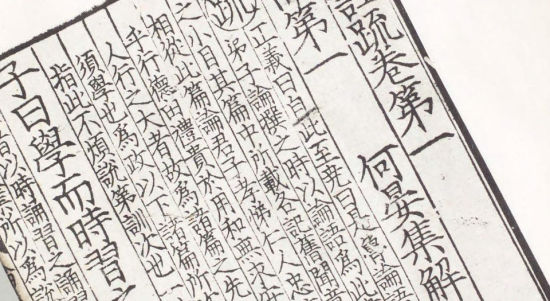 疏卷第一
何晏集解
第一
疏
正義曰自此至堯曰是魯論語
弟子論撰之時以論語為此
之小目其篇中所載各記舊聞意
相從此篇論君子孝悌仁人忠
乎行德由禮貴於用和無求安
人行之大者故為諸篇之先
須學也為政以下諸篇所次
指此不煩說第訓次也一
子曰學而時習之
以時誦習之誦習
所以為說